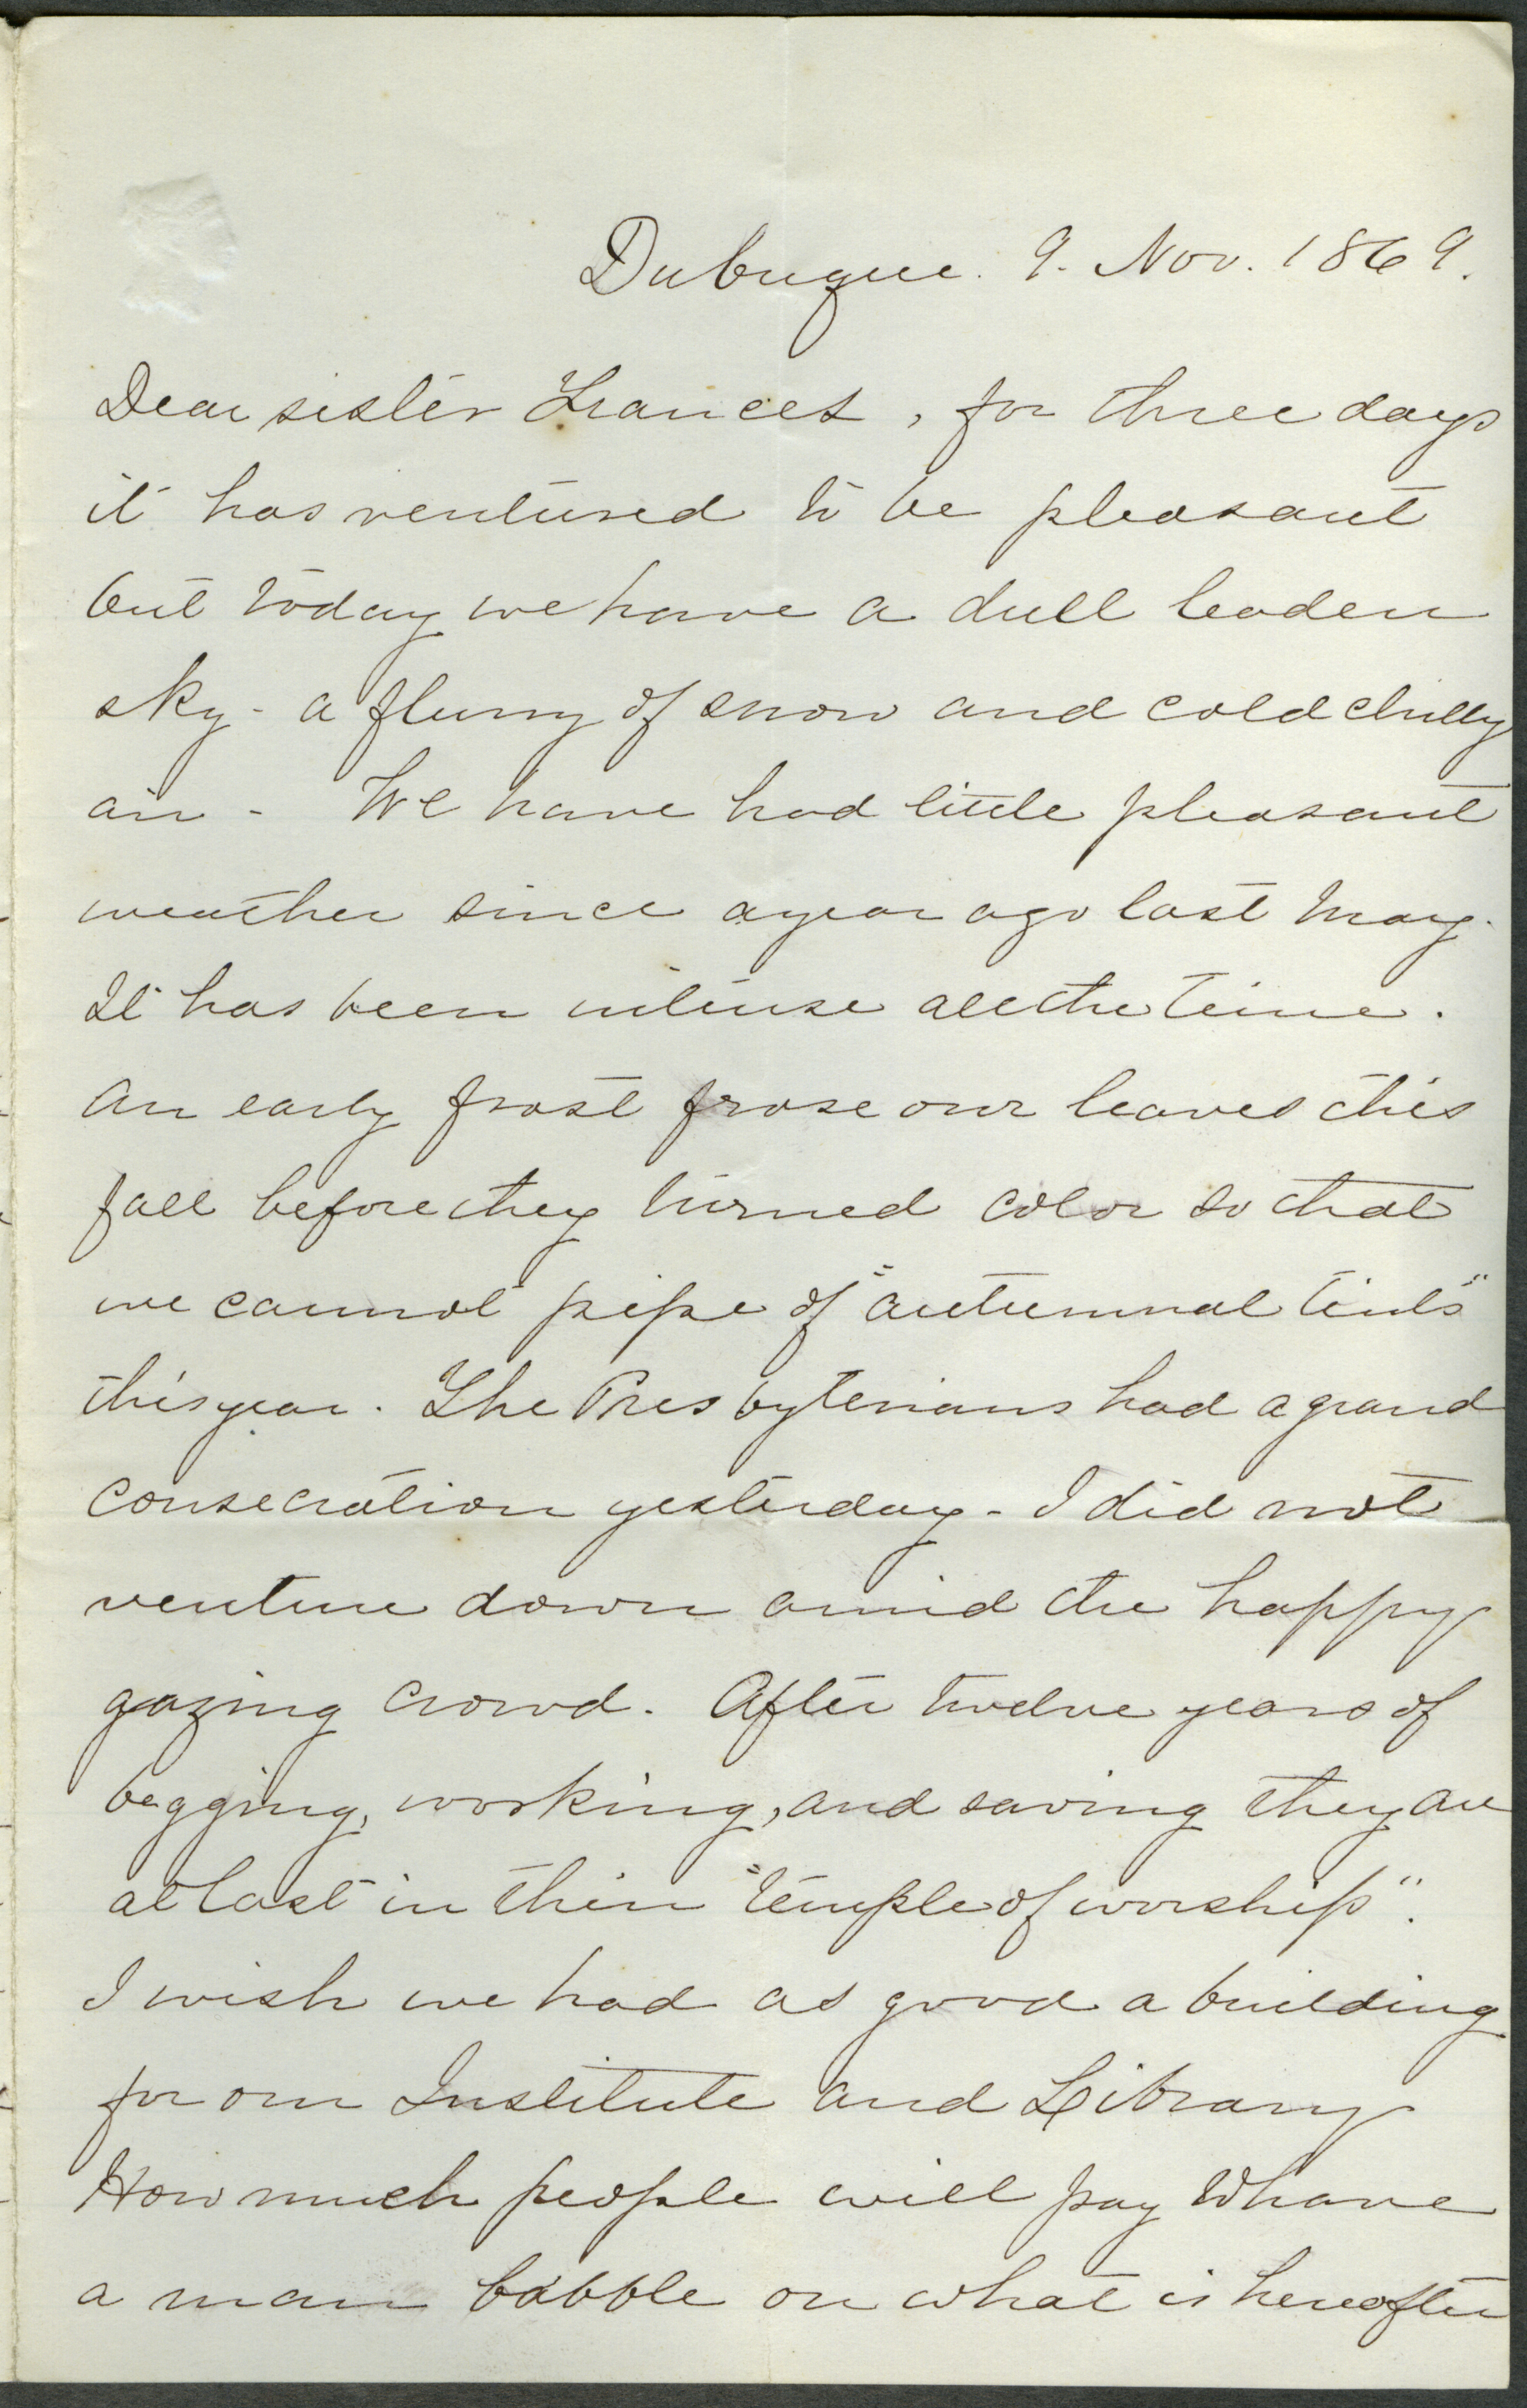 Dubuque. 9. Nov. 1869.
Dear sister Frances, for three days
it has ventured to be pleasant
but today we have a dull leaden
sky - a flurry of snow and cold chilly
air - We have had little pleasant
weather since a year ago last May.
It has been intense all the time.
An early frost froze our leaves this
fall before they turned color so that
we cannot pipe of "autumnal tints"
this year. The Presbyterians had a grand
consecration yesterday - I did not
venture down amid the happy
gazing crowd. After twelve years of
begging, working, and saving they are
at last in their "temple of worship".
I wish we had as good a building
for our Institute and Library
How much people will pay to have
a man babble on what is hereafter